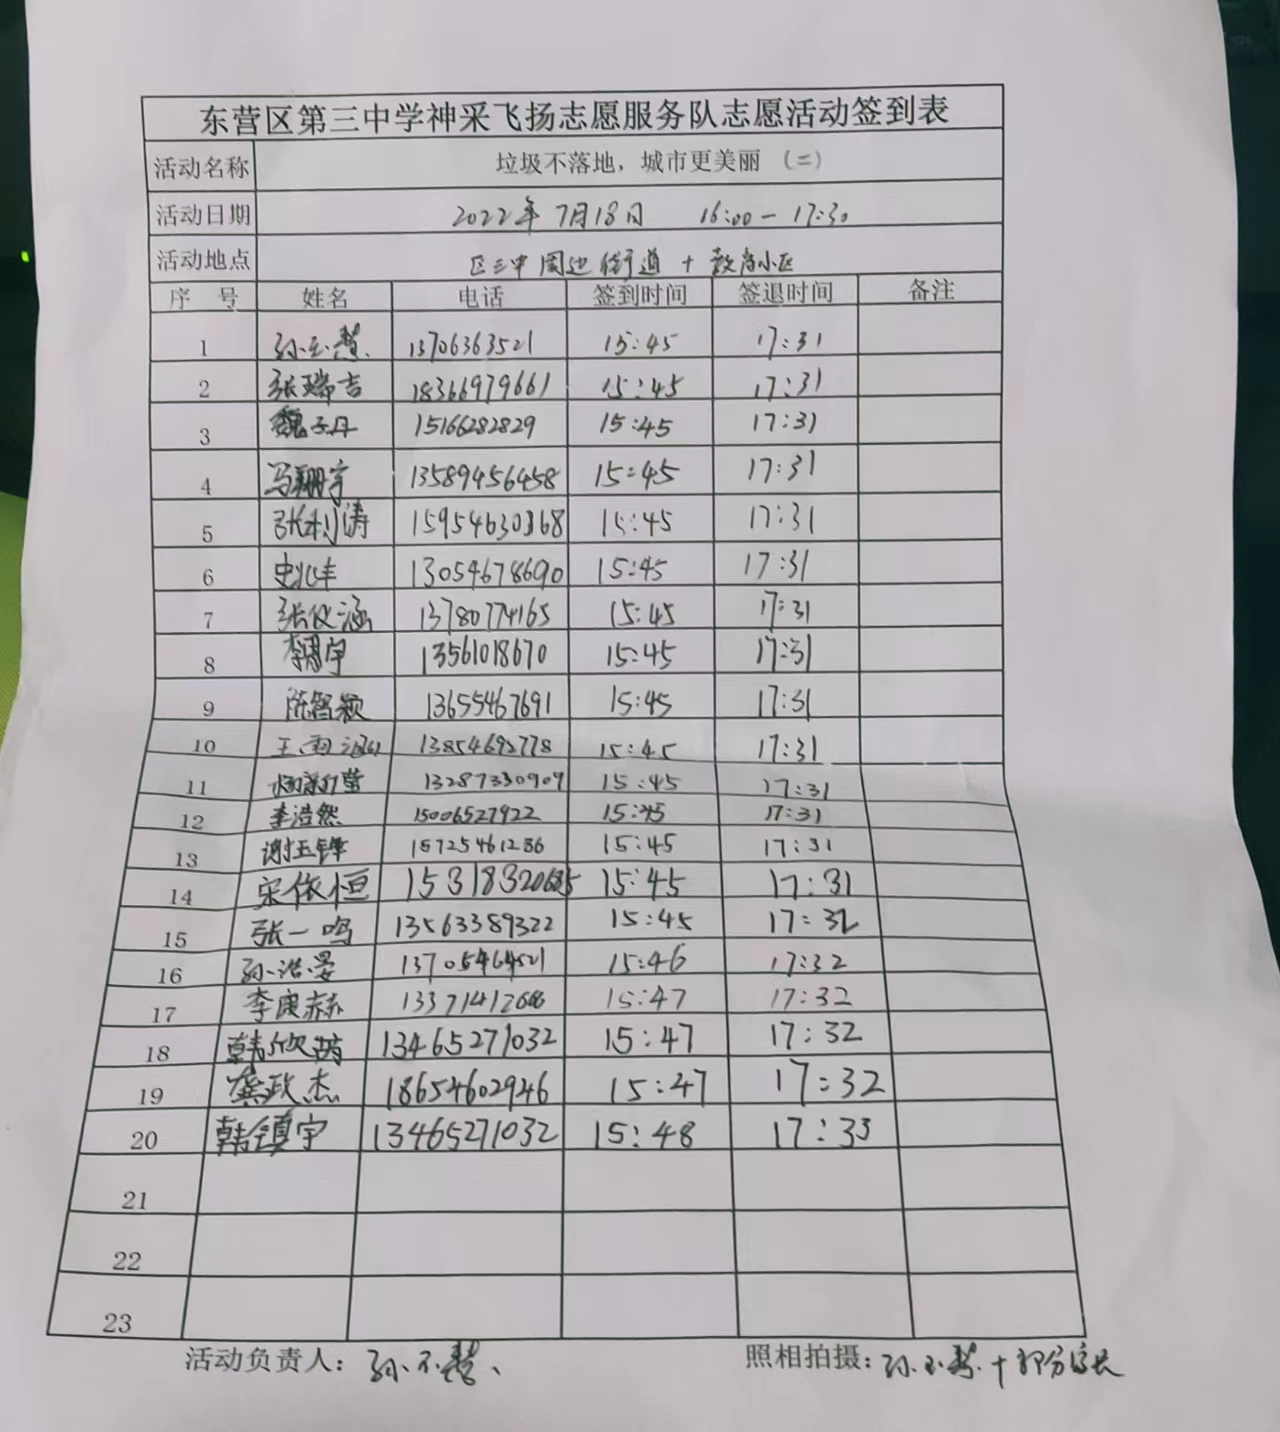 东营区第三中学神采飞扬志愿服务队志愿活动签到表
活动名称 垃圾不落地，城市更美丽（二）
活动日期 2022年7月18日 16:00-17:30
活动地点 区三中周边街道+教育小区
序号 姓名 电话 签到时间 签退时间 备注
1 孙玉慧 13706363521 15:45 17:31
2 张瑞吉 18366979661 15:45 17:31
3 魏子丹 15166282829 15:45 17:31
4 冯翔宇 13589456458 15:45 17:31
5 张利涛 15954630368 15:45 17:31
6 史兆丰 13054678690 15:45 17:31
7 张仪涵 13780774165 15:45 17:31
8 李宇 13561018670 15:45 17:31
9 陈智颖 13655467691 15:45 17:31
10 王雨涵 13854692778 15:45 17:31
11 13287330909 15:45 17:31
12 李浩然 15006527922 15:45 17:31
13 谢玉锋 15725461286 15:45 17:31
14 宋依恒 15318320685 15:45 17:31
15 张一鸣 13563389322 15:45 17:32
16 孙浩晏 13705464521 15:46 17:32
17 李庚赫 15:47 17:32
18 韩欣 13465271032 15:47 17:32
19 龚政杰 18654602946 15:47 17:32
20 韩镇宇 13465271032 15:48 17:33
21
22
23
活动负责人：孙玉慧、 照相拍摄：孙玉慧+部分家长